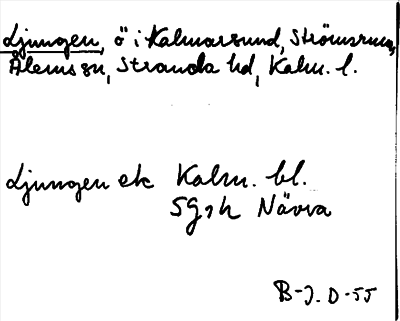 Ljungen, ö i Kalmarsund, Strömsrum,
Ålems sn, Stranda hd, Kalm. l.
Ljungen ek Kalm. bl.
SGsh Nävra
B-J. D-55